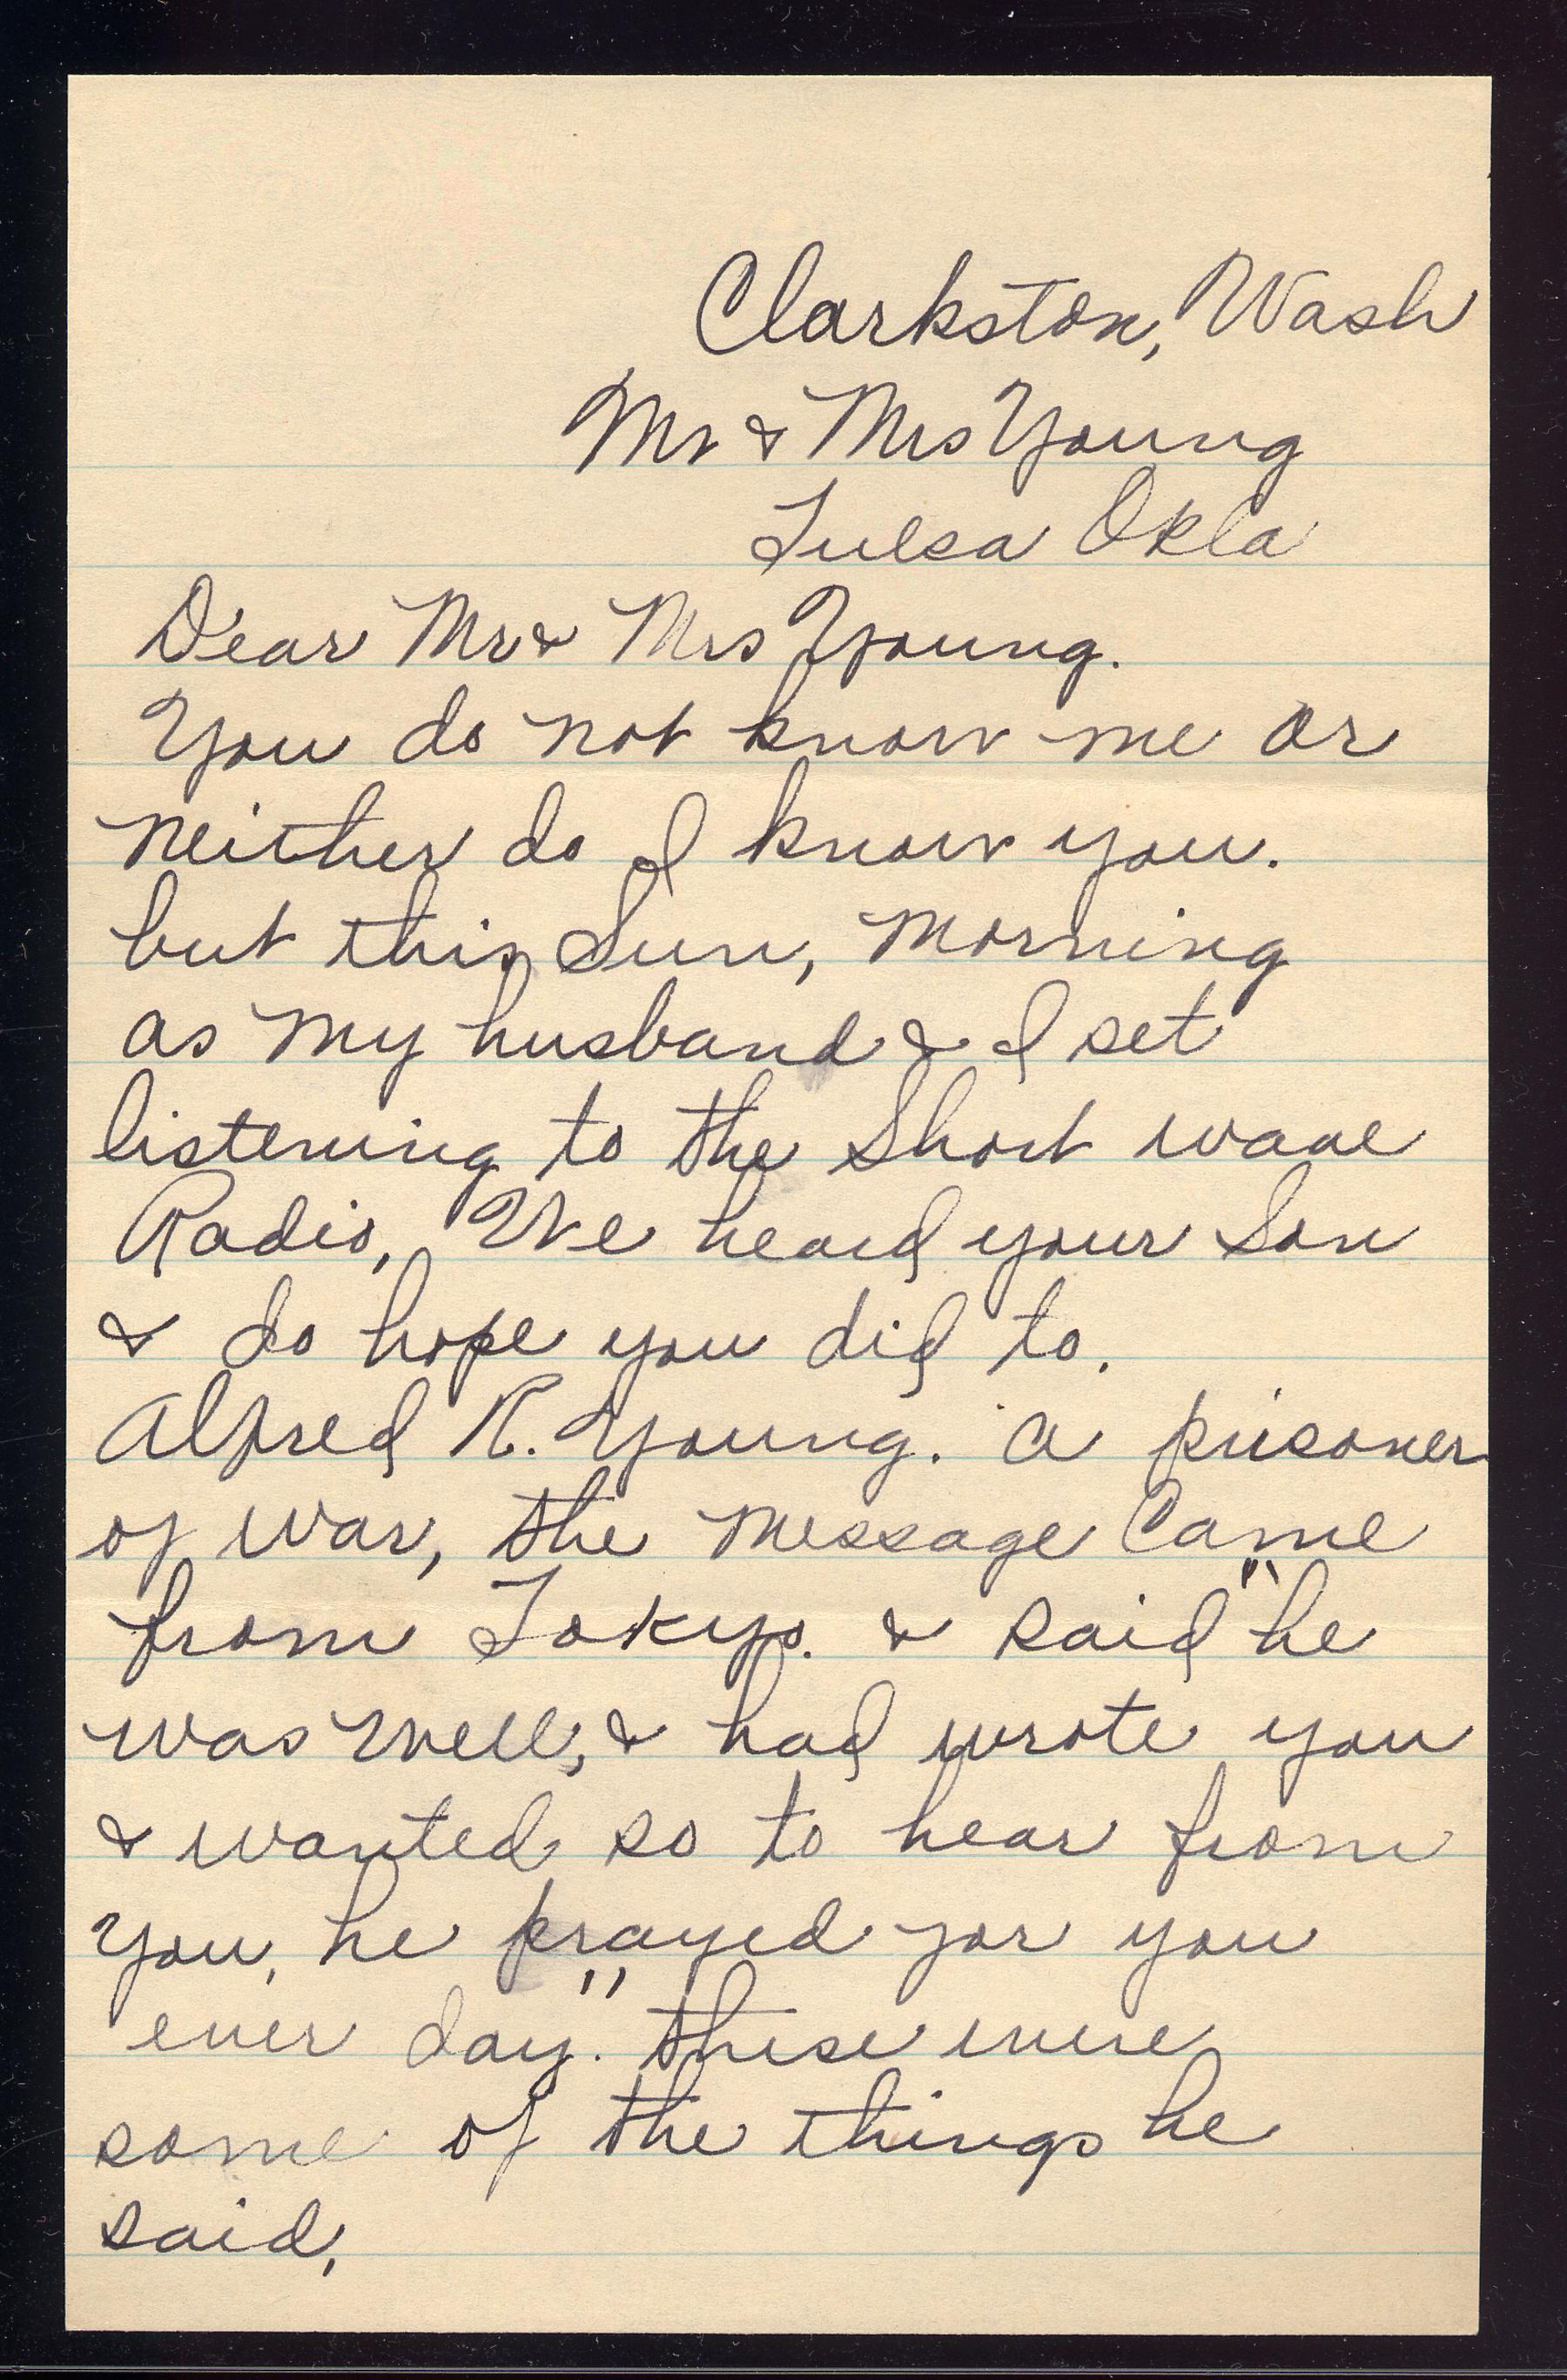 Clarkston, Wash
Mr & Mrs Young
Tulsa Okla
Dear Mr & Mrs Young.
You do not know me or
neither do I know you.
but this Sun, morning
as my husband & I set
listening to the Short wave
Radio, We heard your Son
& do hope you did to.
Alfred R. Young. a prisoner
of war, the message Came
from Tokyo. & said "he
was well, & had wrote you
& wanted so to hear from
you, he prayed for you
ever day." these were
some of the things he
said,